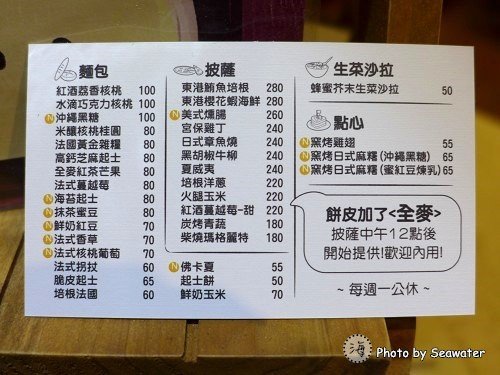 麵包
紅酒荔香核桃 100
水滴巧克力核桃 100
N 沖繩黑糖 100
米釀核桃桂圓 80
法國黃金雜糧 80
高鈣芝麻起士 80
全麥紅茶芒果 80
法式蔓越莓 80
N 海苔起士 80
N 抹茶蜜豆 80
N 鮮奶紅豆 70
N 法式香草 70
N 法式核桃葡萄 70
法式拐拉 60
脆皮起士 65
培根法國 60
披薩
東港鮪魚培根 280
東港櫻花蝦海鮮 280
N 美式燻腸 260
宮保雞丁 240
日式章魚燒 240
黑胡椒牛柳 240
夏威夷 240
培根洋蔥 220
火腿玉米 220
紅酒蔓越莓-甜 220
炭烤青蔬 180
柴燒瑪格麗特 180
N 佛卡夏 55
起士餅 50
鮮奶玉米 70
生菜沙拉
蜂蜜芥末生菜沙拉 50
點心
N 窯烤雞翅 55
N 窯烤日式麻糬(沖繩黑糖) 65
N 窯烤日式麻糬(蜜紅豆煉乳) 65
餅皮加了<全麥>
披薩中午12點後
開始提供!歡迎內用!
~ 每週一公休 ~
海 Photo by Seawater